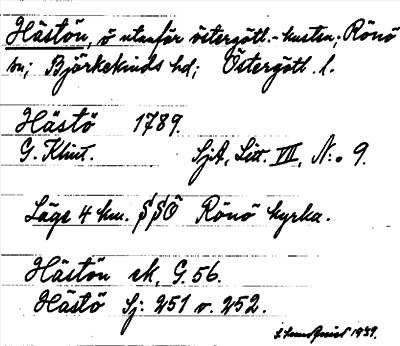 Hästön, ö utanför östergötl.-kusten; Rönö
sn; Björkekinds hd; Östergötl. l.
Hästö 1789.
G. Klint. SjA, Litt. VII, N:o 9.
Läge 4 km. SSO Rönö kyrka.
Hästön ek. G. 56.
Hästö Sj: 251 o. 252.
1939.